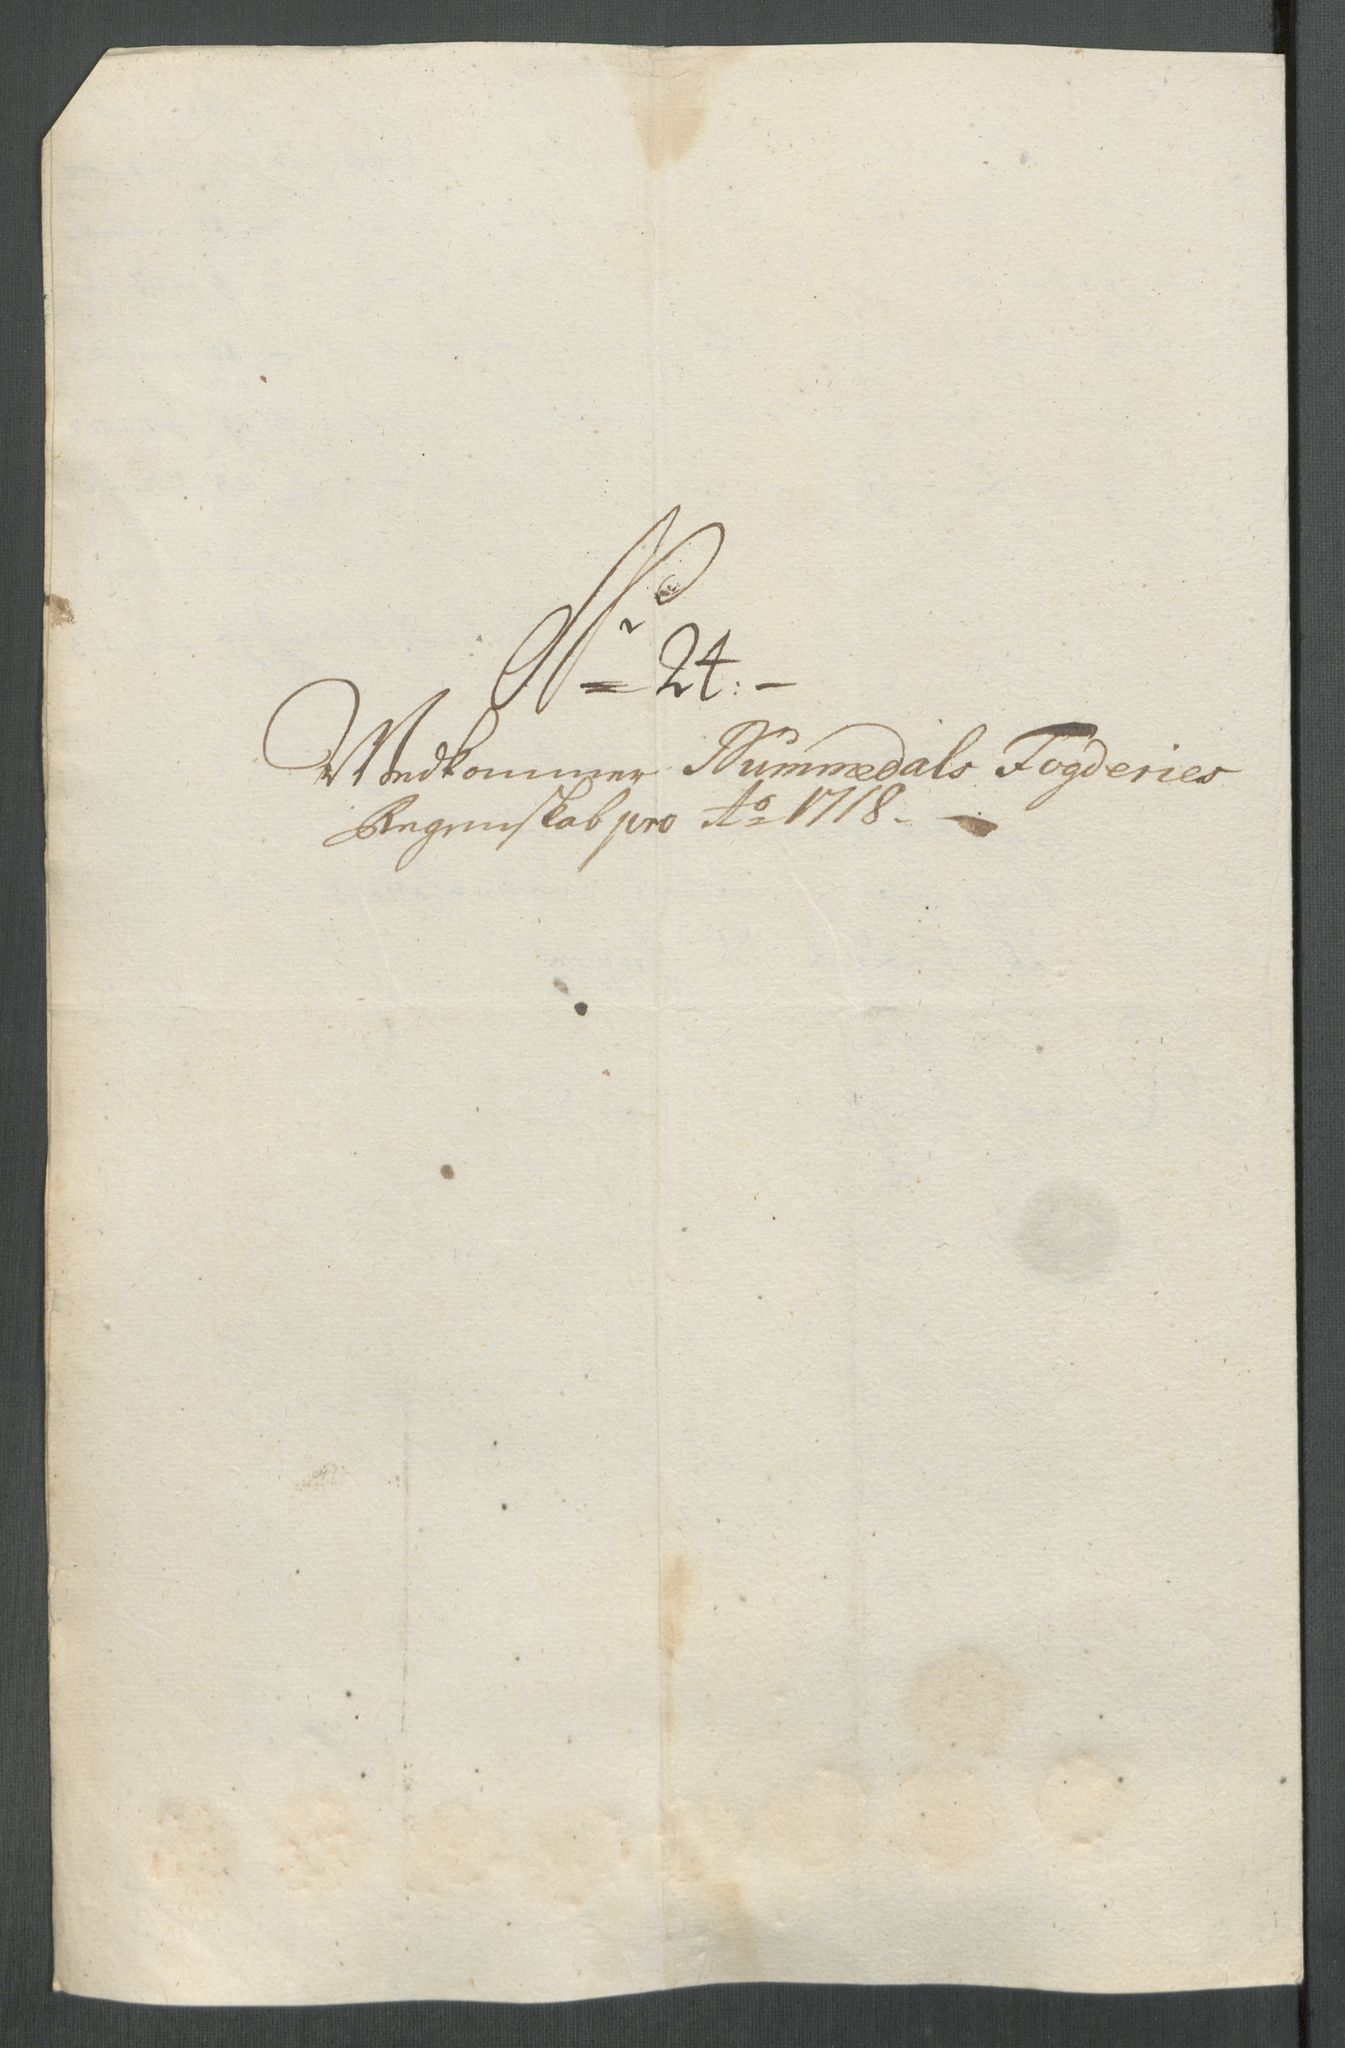 No
24:
Vedkommer Nummedals Fogderies
Regenskab pro Ao 1718.